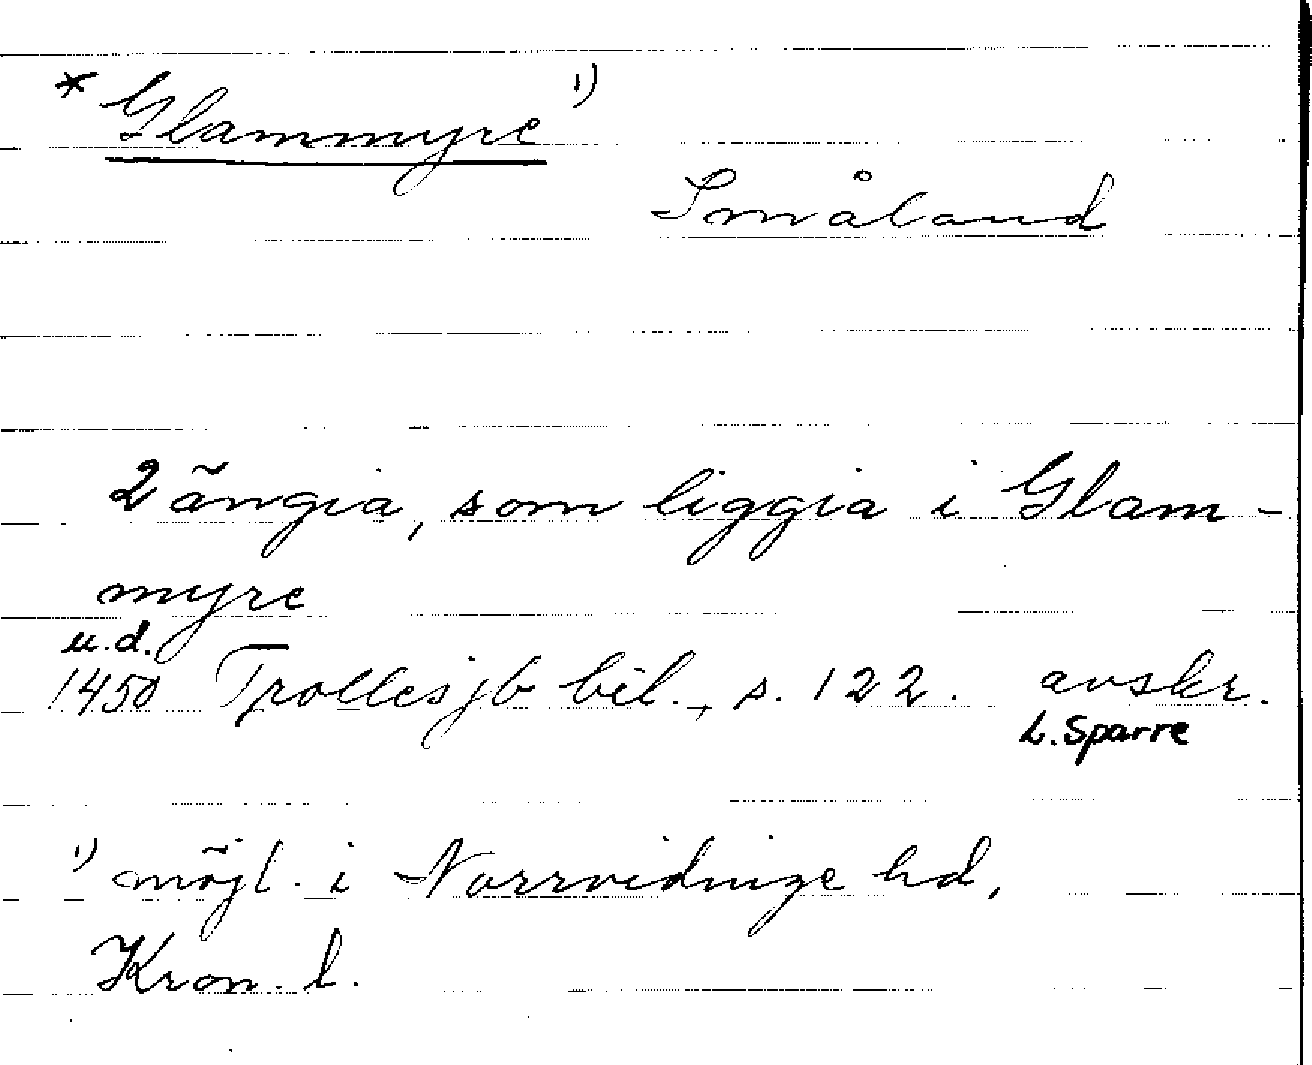 * Glammyre 1)
Småland
2 ängia, som liggia i Glam-
myre
u.d.
1450 Trollesjb bil., s. 122. avskr.
L. Sparre
1) möjl. i Norrvidinge hd,
Kron. l.